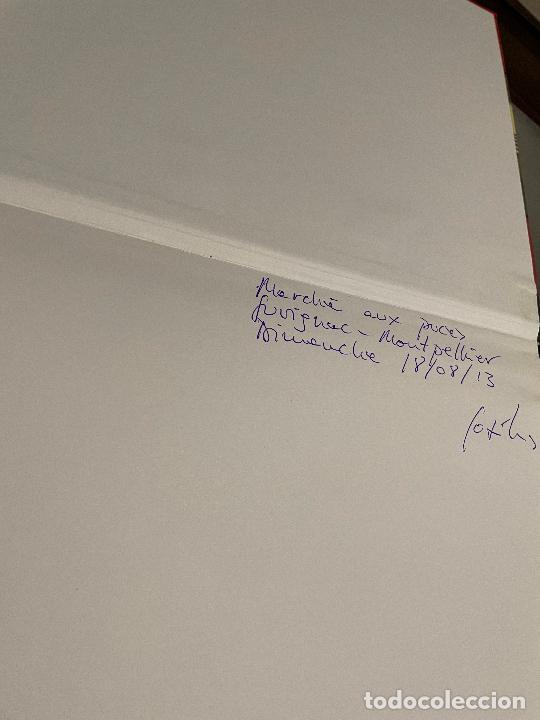 Marché aux puces
Juvignac - Montpellier
Dimanche 18/08/13
todocoleccion